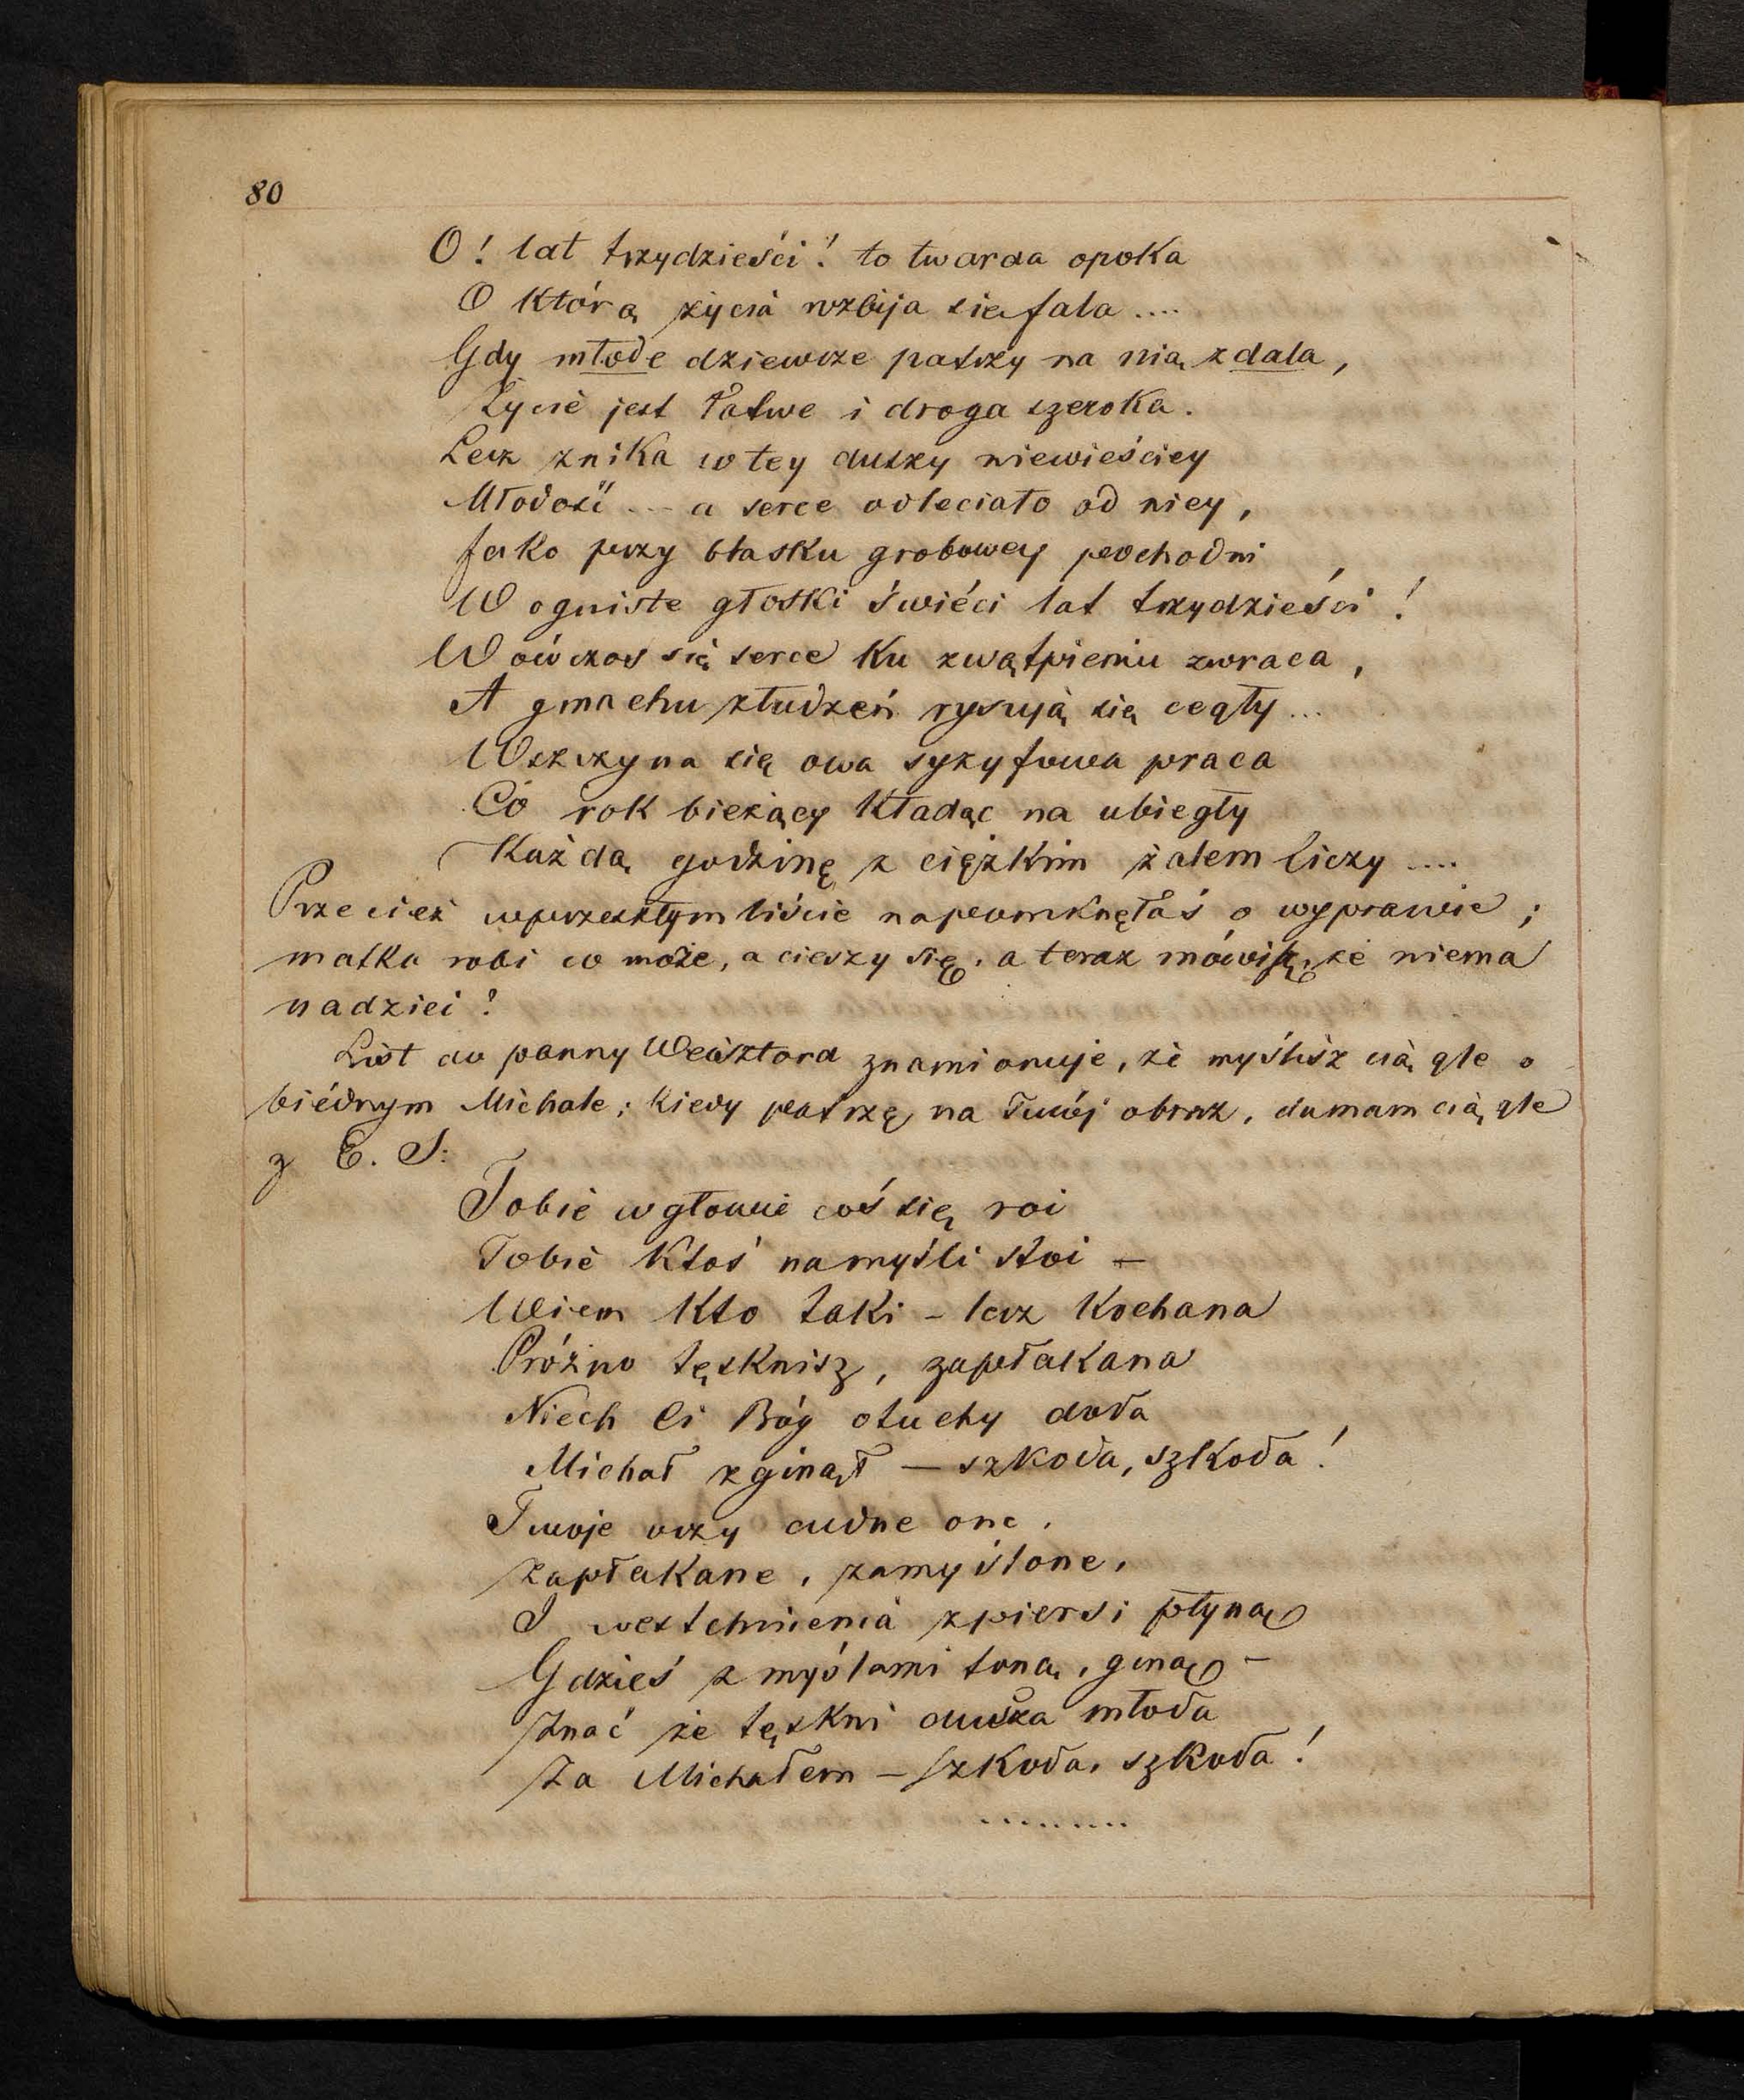 80
O! lat trzydzieści! to twarda opoka
O którą życia rozbija się fala....
Gdy młode dziewcze patrzy na nią zdala,
Życie jest łatwe i droga szeroka.
Lecz znika w tey duszy niewieściey
Młodość... a serce odleciało od niey,
Jako przy blasku grobowey pochodni
W ogniste głoski świéci lat trzydzieści!
Wówczas się serce ku zwątpieniu zwraca,
A gmachu złudzeń rysują się cegły...
Wszczyna się owa syzyfowa praca
Co rok bieżący kładąc na ubiegły
Każdą godzinę z ciężkim żalem liczy....
Przecież w przeszłym liście napomknęłaś o wyprawie;
matka robi co może, a cieszy się, a teraz mówisz, że niema
nadziei!
List do panny Weisztord znamionuje, że myślisz ciągle o
biédnym Michale; kiedy patrzę na Twój obraz, dumam ciągle
z E. S:
Tobie w głowie coś się roi
Tobie ktoś na myśli stoi –
Wiem kto taki – lecz kochana
Próżno tęsknisz, zapłakana
Niech Ci Bóg otuchy doda
Michał zginął – szkoda, szkoda!
Twoje oczy cudne one,
Zapłakane, zamyślone,
I westchnienia z piersi płyną
Gdzieś z myślami toną, giną –
Znać że tęskni dusza młoda
Za Michałem – szkoda, szkoda!
.........